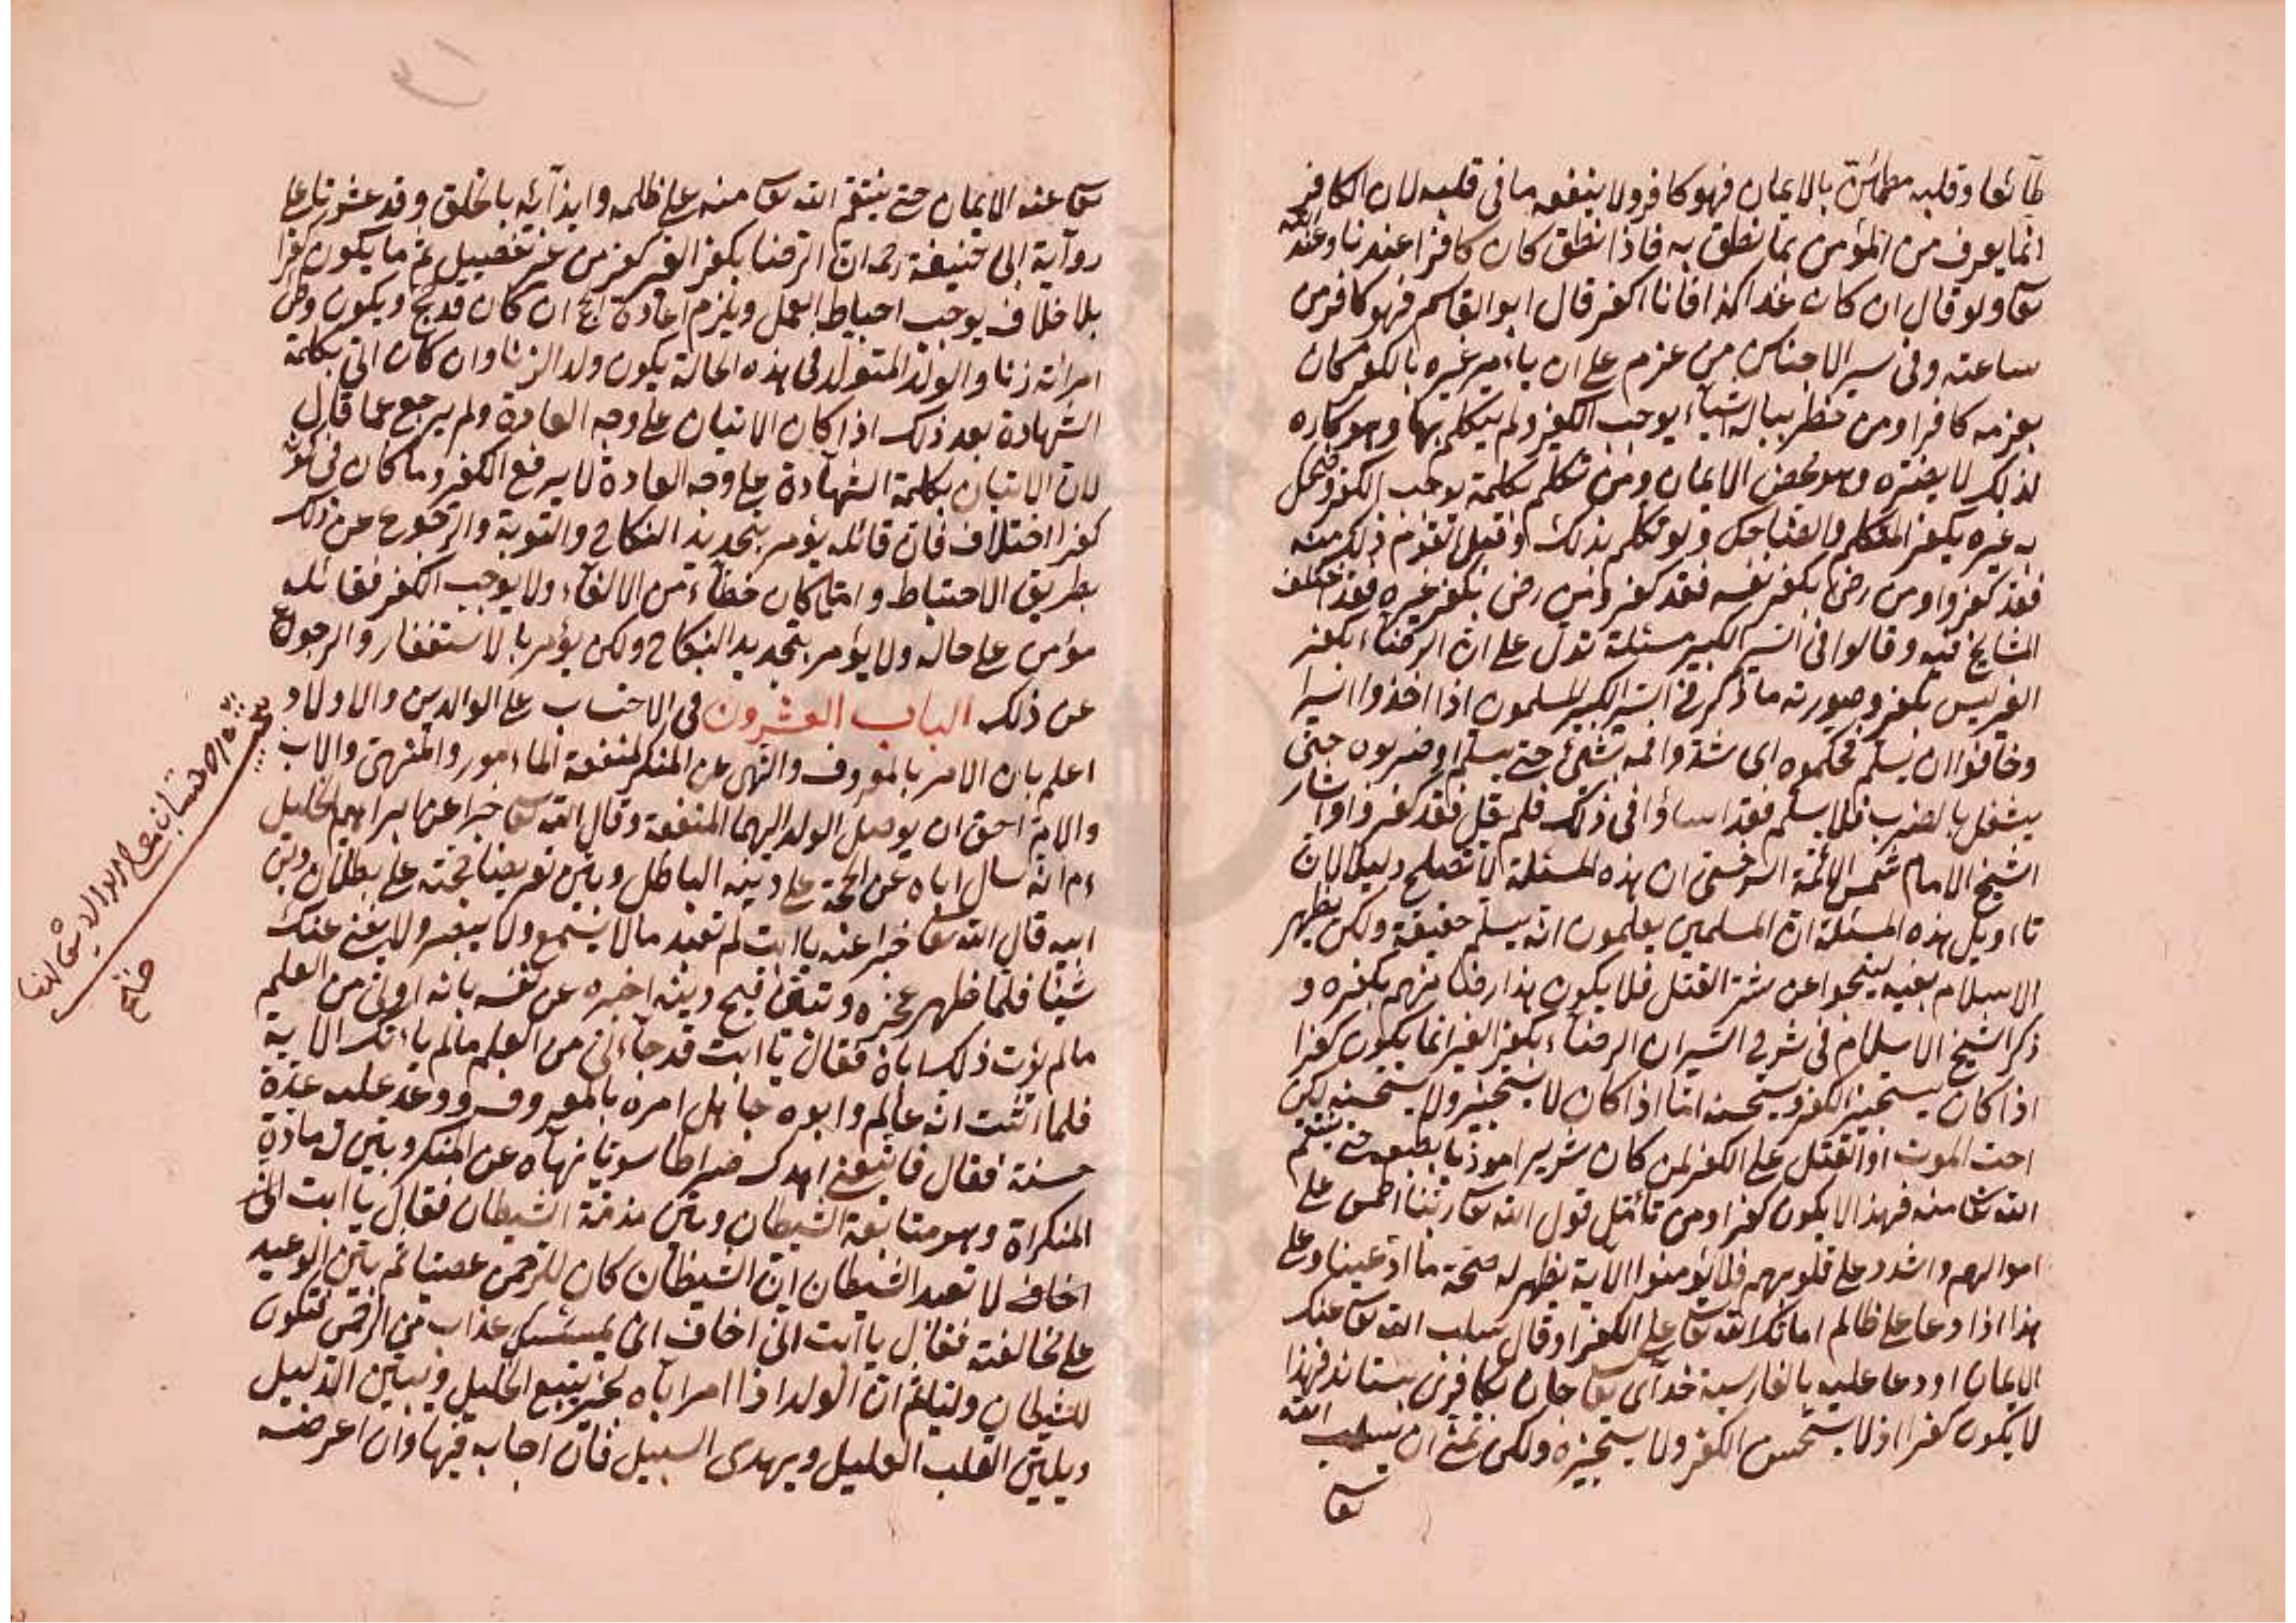 طآئعا وقلبه مطمائن بالايمان فهو كافر ولا ينفعه ما فى قلبه لان الكافر
انما يعرف من المؤمن بما نطق به فاذا نطق كان كافرا عندنا وعند الله
تعا ولو قال ان كان غدا كذا فانا اكفر قال ابو القاسم فهو كافر من
ساعته وفى سير الاجناس من عزم على ان ياءمر غيره بالكفر كان
بعزمه كافرا ومن خطر بباله اشياء يوجب الكفر ولم يتكلم بها وهو كاره
لذلك لا يضره وهو محض الايمان ومن تكلم بكلمة يوجب الكفر وضحك
به غيره يكفر المتكلم والضاحك ولو تكلم بذلك وقبل القوم ذلك منه
فقد كفروا ومن رضى بكفر نفسه فقد كفر ومن رضى بكفر غيره فقد اختلف
المشايخ فيه وقالوا فى السير الكبير مسئلة تدل على ان الرضاء بكفر
الغير ليس بكفر وصورته ما ذكر فى السير الكبير المسلمون اذا اخذوا اسيرا
وخافوا ان يسلم فكعموه اى شدوا فمه بشئ حتى يسلم او ضربوه حتى
يشغل بالضرب فلا يسلم فقد اساؤا فى ذلك فلم يقل فقد كفروا واشار
الشيخ الامام شمس الائمة السرخسى ان هذه المسئلة لا تصلح دليلا لان
تاءويل هذه المسئلة ان المسلمين يعلمون انه يسلم حقيقة ولكن يظهر
الاسلام بفيه لينجوا عن شر القتل فلا يكون هذا رضا منهم بكفره و
ذكر شيخ الاسلام فى شرح السير ان الرضاء بكفر الغير انما يكون كفرا
اذا كان يستجيز الكفر ويستحسنه اما اذا كان لا يستجيز ولا يستحسنه لكن
احب الموت او القتل على الكفر لمن كان شريرا موذيا بطبعه حتى ينتقم
الله تعا منه فهذا لا يكون كفرا ومن تاءمل قول الله تعا ربنا اطمس على
اموالهم واشدد على قلوبهم فلا يؤمنوا الاية يظهر له صحة ما ادعينا وعلى
هذا اذا دعا على ظالم اماتك الله تعا على الكفر او قال سلب الله تعا عنك
الايمان او دعا عليه بالفارسية خداى تعا جان بكافرى بستاند فهذا
لا يكون كفرا اذ لا يستحسن الكفر ولا يستجيزه ولكن تمنى ان يسلب الله
تعا
تعا عنه الايمان حتى ينتقم الله تعا منه على ظلمه وايذآئه بالخلق وقد عثرنا على
روآية ابى حنيفة رحمه ان الرضا بكفر الغير كفر من غير تفصيل ثم ما يكون كفرا
بلا خلاف يوجب احباط العمل ويلزم اعادة الحج ان كان قد حج ويكون وطئ
امرائته زنا والولد المتولد فى هذه الحالة يكون ولد الزنا وان كان اتى بكلمة
الشهادة بعد ذلك اذا كان الاتيان على وجه العادة ولم يرجع عما قال
لان الاتيان بكلمة الشهآدة على وجه العادة لا يرفع الكفر وما كان فى كونه
كفرا اختلاف فان قائله يؤمر بتجديد النكاح والتوبة والرجوع عن ذلك
بطريق الاحتياط واما كان خطآء من الالفآظ ولا يوجب الكفر فقائله
مؤمن على حاله ولا يؤمر بتجديد النكاح ولكن يؤمر بالاستغفار والرجوع
عن ذلك الباب العشرون فى الاحتساب على الوالدين والاولاد
اعلم بان الامر بالمعروف والنهى عن المنكر لمنفعة الماءمور والمنهى والاب
والام احق ان يوصل الولد اليهما المنفعة وقال الله تعا خبرا عن ابراهيم الخليل
ءم انه سال اباه عن الحجة على دينه الباطل وبين تعريضا لحجته على بطلان دين
ابيه قال الله تعا خبرا عنه يا ابت لم تعبد ما لا يسمع ولا يبصر ولا يغنى عنك
شيئا فلما ظهر عجزه وتيقن قبح دينه اخبره عن نفسه بانه اوتى من العلم
مالم يؤت ذلك اباه فقال يا ابت قد جاءنى من العلم مالم ياءتك الاية
فلما اثبت انه عالم وابوه جاهل امره بالمعروف ووعد عليه عدة
حسنة فقال فاتبعنى اهدك صراطا سويا نهآه عن المنكر وبين ان مادة
المنكراة وهو متابعة الشيطان وبين مذمة الشيطان فقال يا ابت انى
اخاف لا تعبد الشيطان ان الشيطان كان للرحمن عصيا ثم بين الوعيد
على مخالفته فقال يا ابت انى اخاف ان يمسك عذاب من الرحمن فتكون
للشيطان وليا ثم ان الولد اذا امر اباه بخير يتبع الخليل ويبين الدليل
ويلين القلب العليل ويهدى السبيل فان اجابه فبها وان اعرض عنه